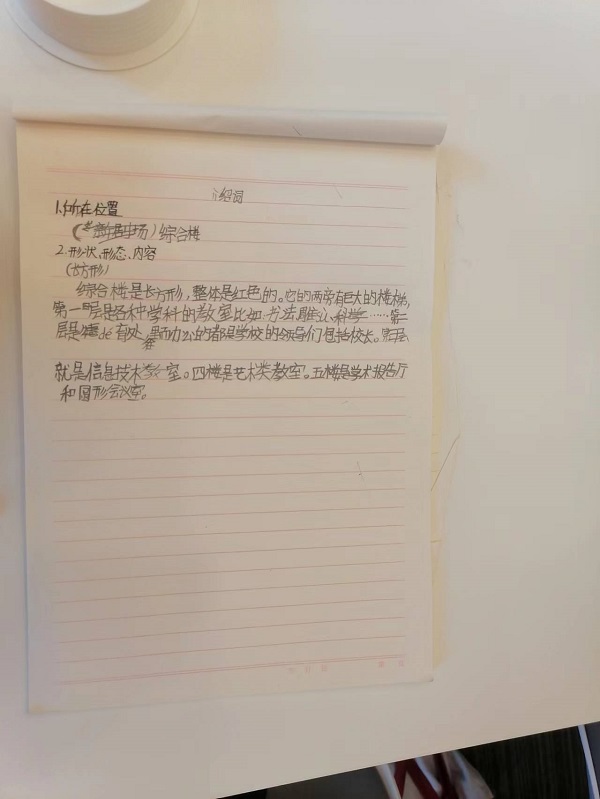 介绍词
1.所在位置
综合楼
2.形状、形态、内容
(长方形)
综合楼是长方形,整体是红色的。它的两旁有巨大的楼梯,
第一层是各种学科的教室比如:书法、心、科学……第二
层是 de 有处,里面办公的都是学校的领导们包括校长。第三层
就是信息技术教室。四楼是艺术类教室。五楼是学术报告厅
和圆形会议室。